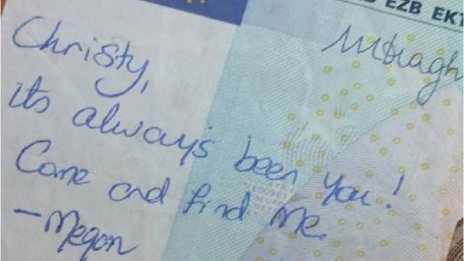 EZB EKT
Christy,
its always been you!
Come and find me.
- Megan